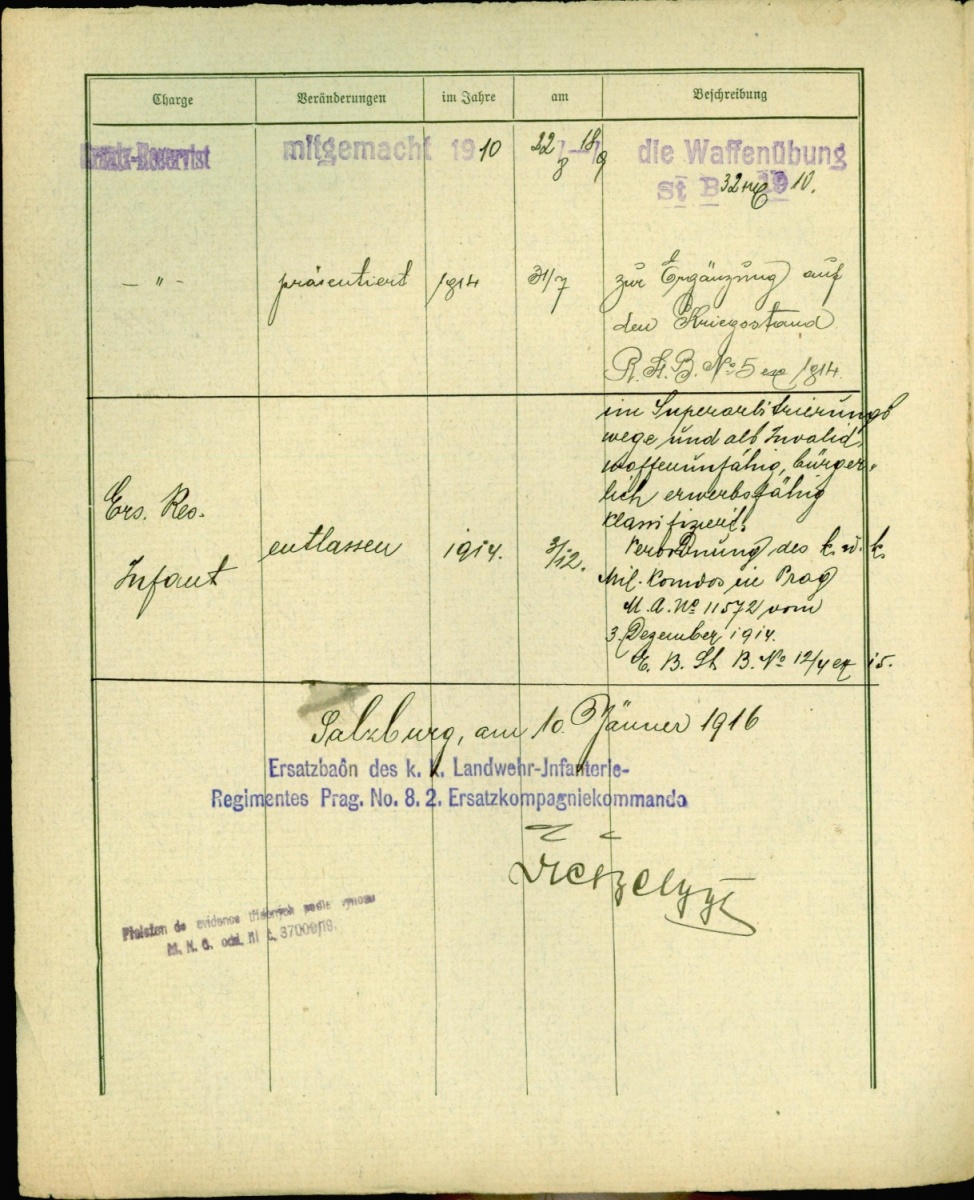 Charge Veränderungen im Jahre am Beschreibung
Ersatz-Reservist mitgemacht 1910 22/8 – 18/9 die Waffenübung
St B 32 1910.
— " — präsentiert 1914 31/7 zur Ergänzung auf
den Kriegsstand
R. St. B. No 5 ex 1914.
im Superarbitrierungs
wege und als Invalid,
waffenunfähig, bürger-
lich erwerbsfähig
klassifiziert.
Ers. Res.
Infant entlassen 1914. 3/12. Verordnung des k. u. k.
Mil. Komdos in Prag
M. A. No 11572 vom
3. Dezember 1914.
E. B. St. B. No 12/4 ex 15.
Salzburg, am 10. Jänner 1916
Ersatzbaôn des k. k. Landwehr-Infanterie-
Regimentes Prag. No. 8. 2. Ersatzkompagniekommando
de evidence podle vynosu
M. N. O. odd. III č. 37009/19.